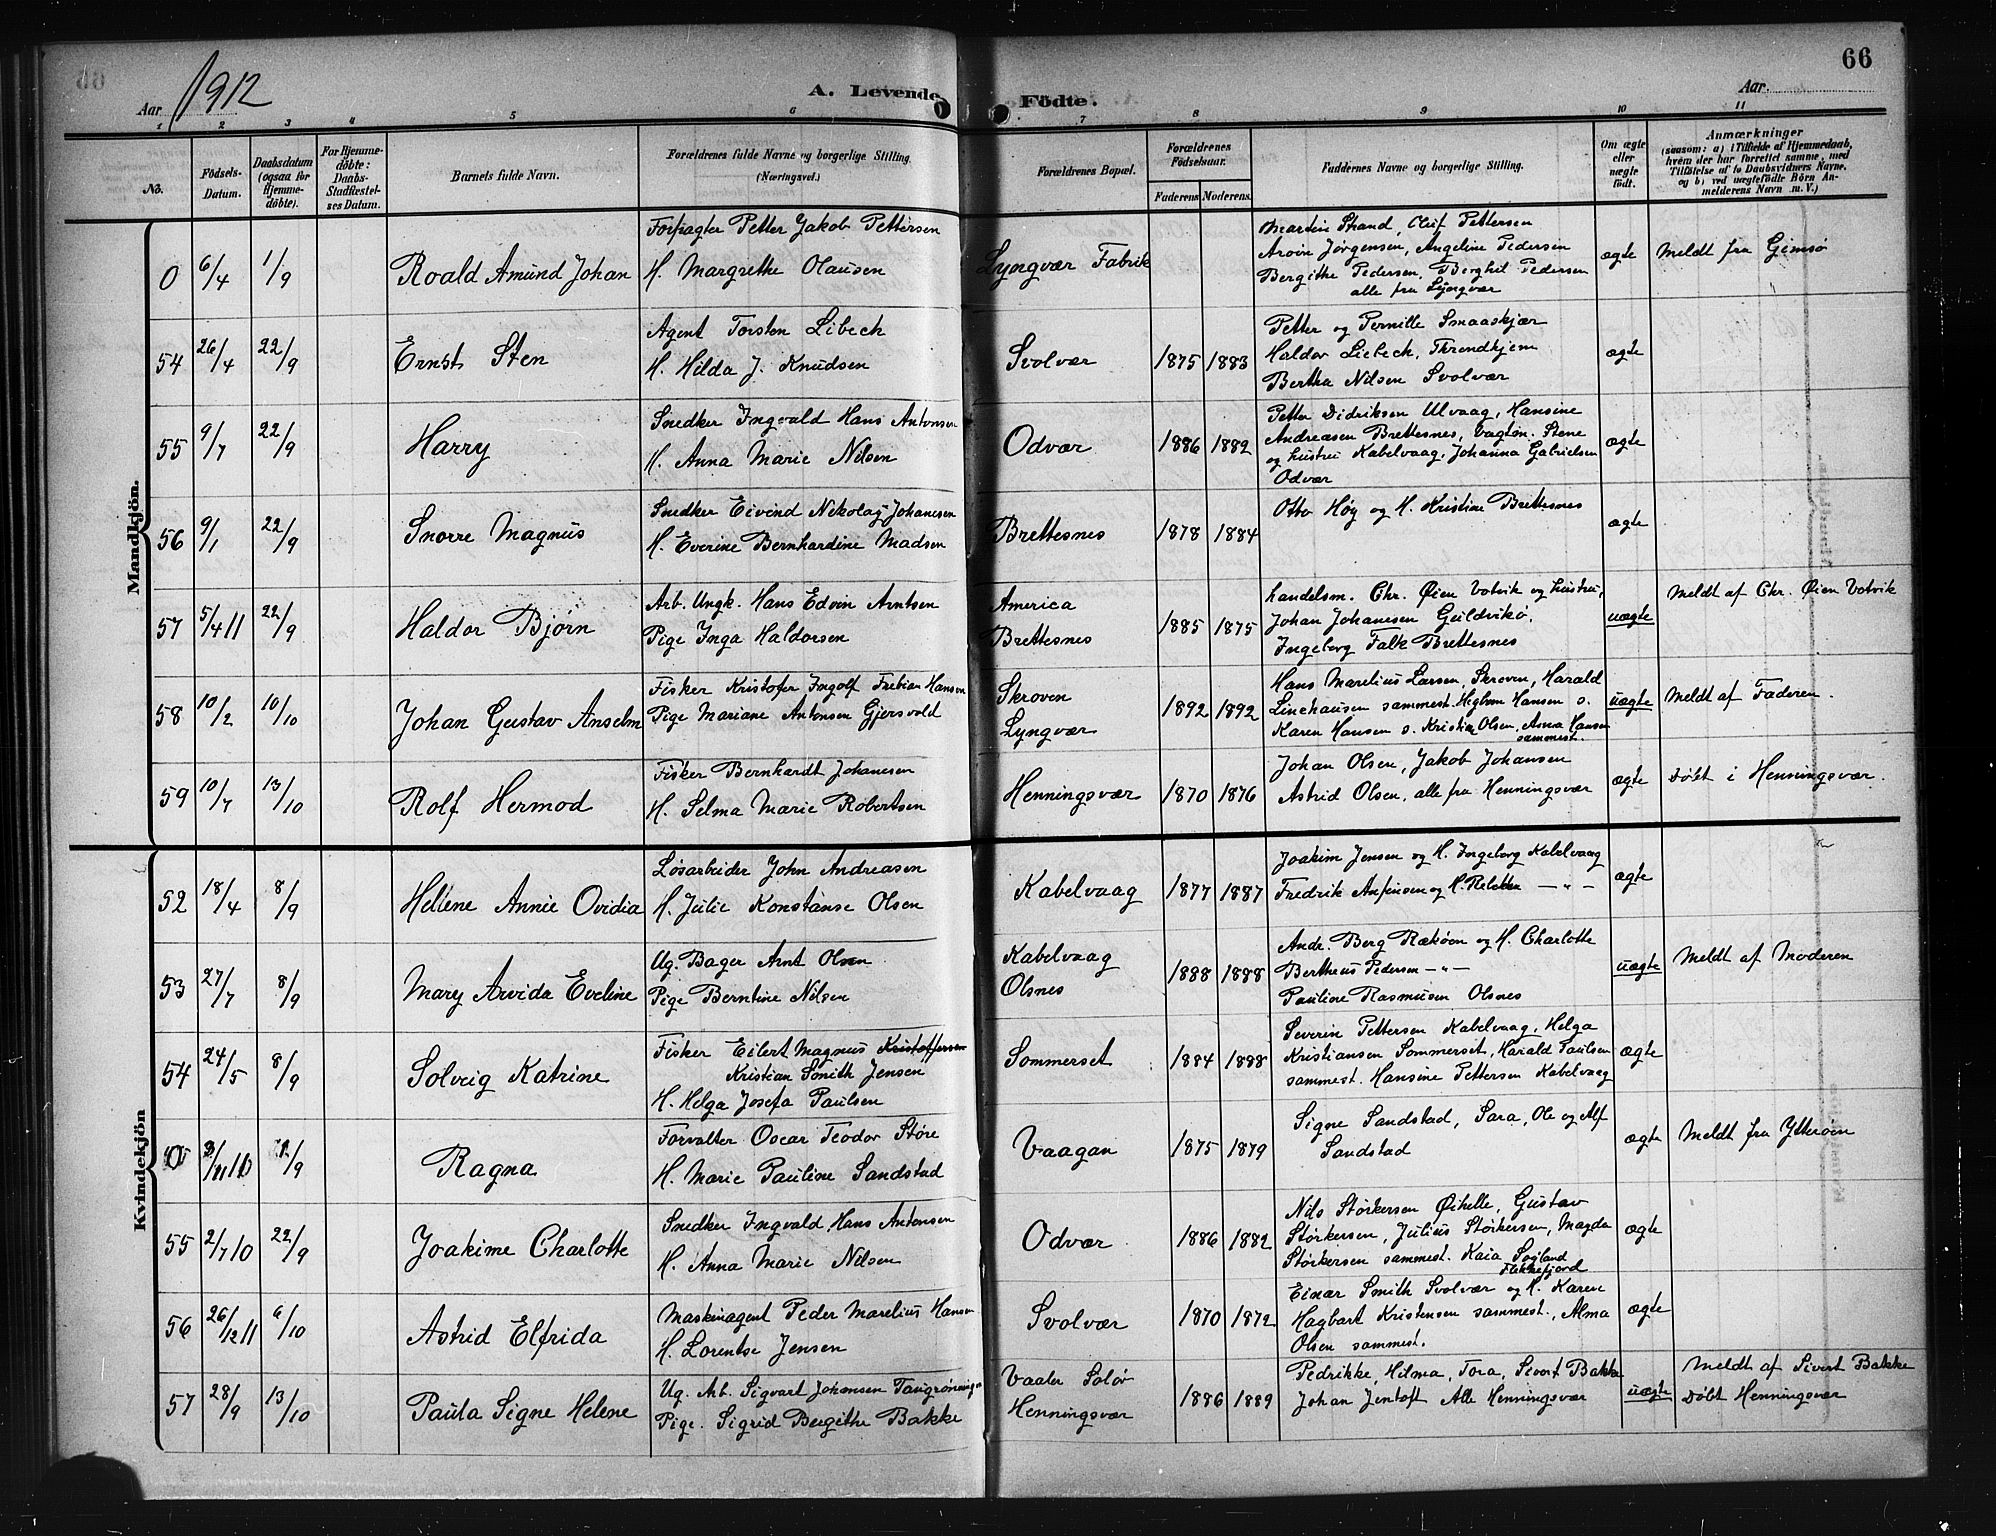 66
Aar 1912
A. Levende Födte.
Aar
1 2 3 4 5 6 7 8 9 10 11
No.
Födsels-Datum.
Daabsdatum (ogsaa for Hjemme-döbte).
For Hjemme-döbte: Daabs-Stadfæstel-ses Datum.
Barnets fulde Navn.
Forældrenes fulde Navne og borgerlige Stilling. (Næringsvei.)
Forældrenes Bopæl.
Forældrenes Födselsaar.
Faderens Moderens
Faddernes Navne og borgerlige Stilling.
Om ægte eller uægte født.
Anmærkninger
(saasom: a) i Tilfælde af Hjemmedaab, hvem der har forrettet samme, med Tilføielse af to Daabsvidners Navne, og b) ved uægtefødte Börn An-melderens Navn m. V.)
Mandkjön.
Forpagter Petter Jakob Pettersen
0 6/4 1/9 Roald Amund Johan H. Margrethe Olausen Lyngvær Fabrik
Martin Strand, Oluf Pettersen
Arvin Jørgensen, Angeline Pedersen
Bergithe Pedersen, Berghil Pedersen
alle fra Lyngvær
ægte Meldt fra Gimsø
Agent Torsten Libech
54 26/4 22/9 Ernst Sten H. Hilda J. Knudsen Svolvær 1875 1883
Petter og Pernille Smaaskjær
Haldor Liebech, Throndhjem
Bertha Nilsen Svolvær
ægte
Snedker Ingvald Hans Antonsen
55 9/7 22/9 Harry H. Anna Marie Nilsen Odvær 1886 1882
Petter Didriksen Ulvaag, Hansine
Andreasen Brettesnes, Vagtm. Stene
og hustru Kabelvaag, Johanna Gabrielsen
Odvær
ægte
Snedker Eivind Nikolay Johanesen
56 9/1 22/9 Snorre Magnus H. Everine Bernhardine Madsen Brettesnes 1878 1884
Otto Høy og H. Kristine Brettesnes
ægte
Arb. Ungk. Hans Edvin Arntsen
57 5/4 11 22/9 Haldor Bjørn Pige Inga Haldorsen
America
Brettesnes 1885 1875
handelsm. Chr. Øien Votvik og hustru,
Johan Johanesen Guldvikø,
Ingeborg Falk Brettesnes
uægte Meldt af Chr. Øien Votvik
Fisker Kristofer Ingolf Frebian Hansen
58 10/2 10/10 Johan Gustav Anselm Pige Mariane Antonsen Gjersvold
Skroven
Lyngvær 1892 1892
Hans Marelius Larsen, Skroven, Harald
Linchausen sammest. Hegbom Hansen s.
Karen Hansen s. Kristian Olsen, Anna Hansen
sammest.
uægte Meldt af Faderen.
Fisker Bernhardt Johanesen
59 10/7 13/10 Rolf Hermod H. Selma Marie Robertsen Henningsvær 1870 1876
Johan Olsen, Jakob Johansen
Astrid Olsen, alle fra Henningsvær
ægte Døbt i Henningsvær.
Kvindekjön
Løsarbeider John Andreasen
52 18/4 8/9 Hellene Annie Ovidia H. Julie Konstanse Olsen Kabelvaag 1877 1887
Joakim Jensen og H. Ingeborg Kabelvaag
Fredrik Anfinsen og H. Rebekka — " —
ægte
Ug. Bager Arnt Olsen
53 27/7 8/9 Mary Arvida Eveline Pige Berntine Nilsen
Kabelvaag
Olsnes 1888 1888
Andr. Berg Rækøen og H. Charlotte
Bertheus Pedersen — " —
Pauline Rasmusen Olsnes
uægte Meldt af Moderen
Fisker Eilert Magnus Kristoffersen
Kristian Smith Jensen
54 24/5 8/9 Solveig Katrine H. Helga Josefa Paulsen Sommerset 1884 1888
Severin Pettersen Kabelvaag, Helga
Kristiansen Sommerset, Harald Paulsen
sammest. Hansine Pettersen Kabelvaag
ægte
Forvalter Oscar Teodor Støre
0 3/11 10 /9 Ragna H. Marie Pauline Sandstad Vaagan 1875 1879
Signe Sandstad, Sara, Ole og Alf
Sandstad
ægte Meldt fra Ytterøen
Snedker Ingvald Hans Antonsen
55 2/7 10 22/9 Joakime Charlotte H. Anna Marie Nilsen Odvær 1886 1882
Nils Størkersen Øihelle, Gustav
Størkersen, Julius Størkersen, Magda
Størkersen sammest. Kaia Sogland
Flekkefjord
ægte
Maskinagent Peder Marelius Hansen
56 26/12 11 6/10 Astrid Elfrida H. Lorentse Jensen Svolvær 1870 1872
Einar Smith Svolvær og H. Karen
Hagbart Kristensen sammest., Alma
Olsen sammest.
ægte
Ug. Arb. Sigvart Johansen
57 28/9 13/10 Paula Signe Helene Pige. Sigrid Bergithe Bakke
Vaaler Solør
Henningsvær 1886 1889
Pedrikke, Hilma, Tora, Sivert Bakke
Johan Jentoft Alle Henningsvær
uægte Meldt af Sivert Bakke
Døbt Henningsvær